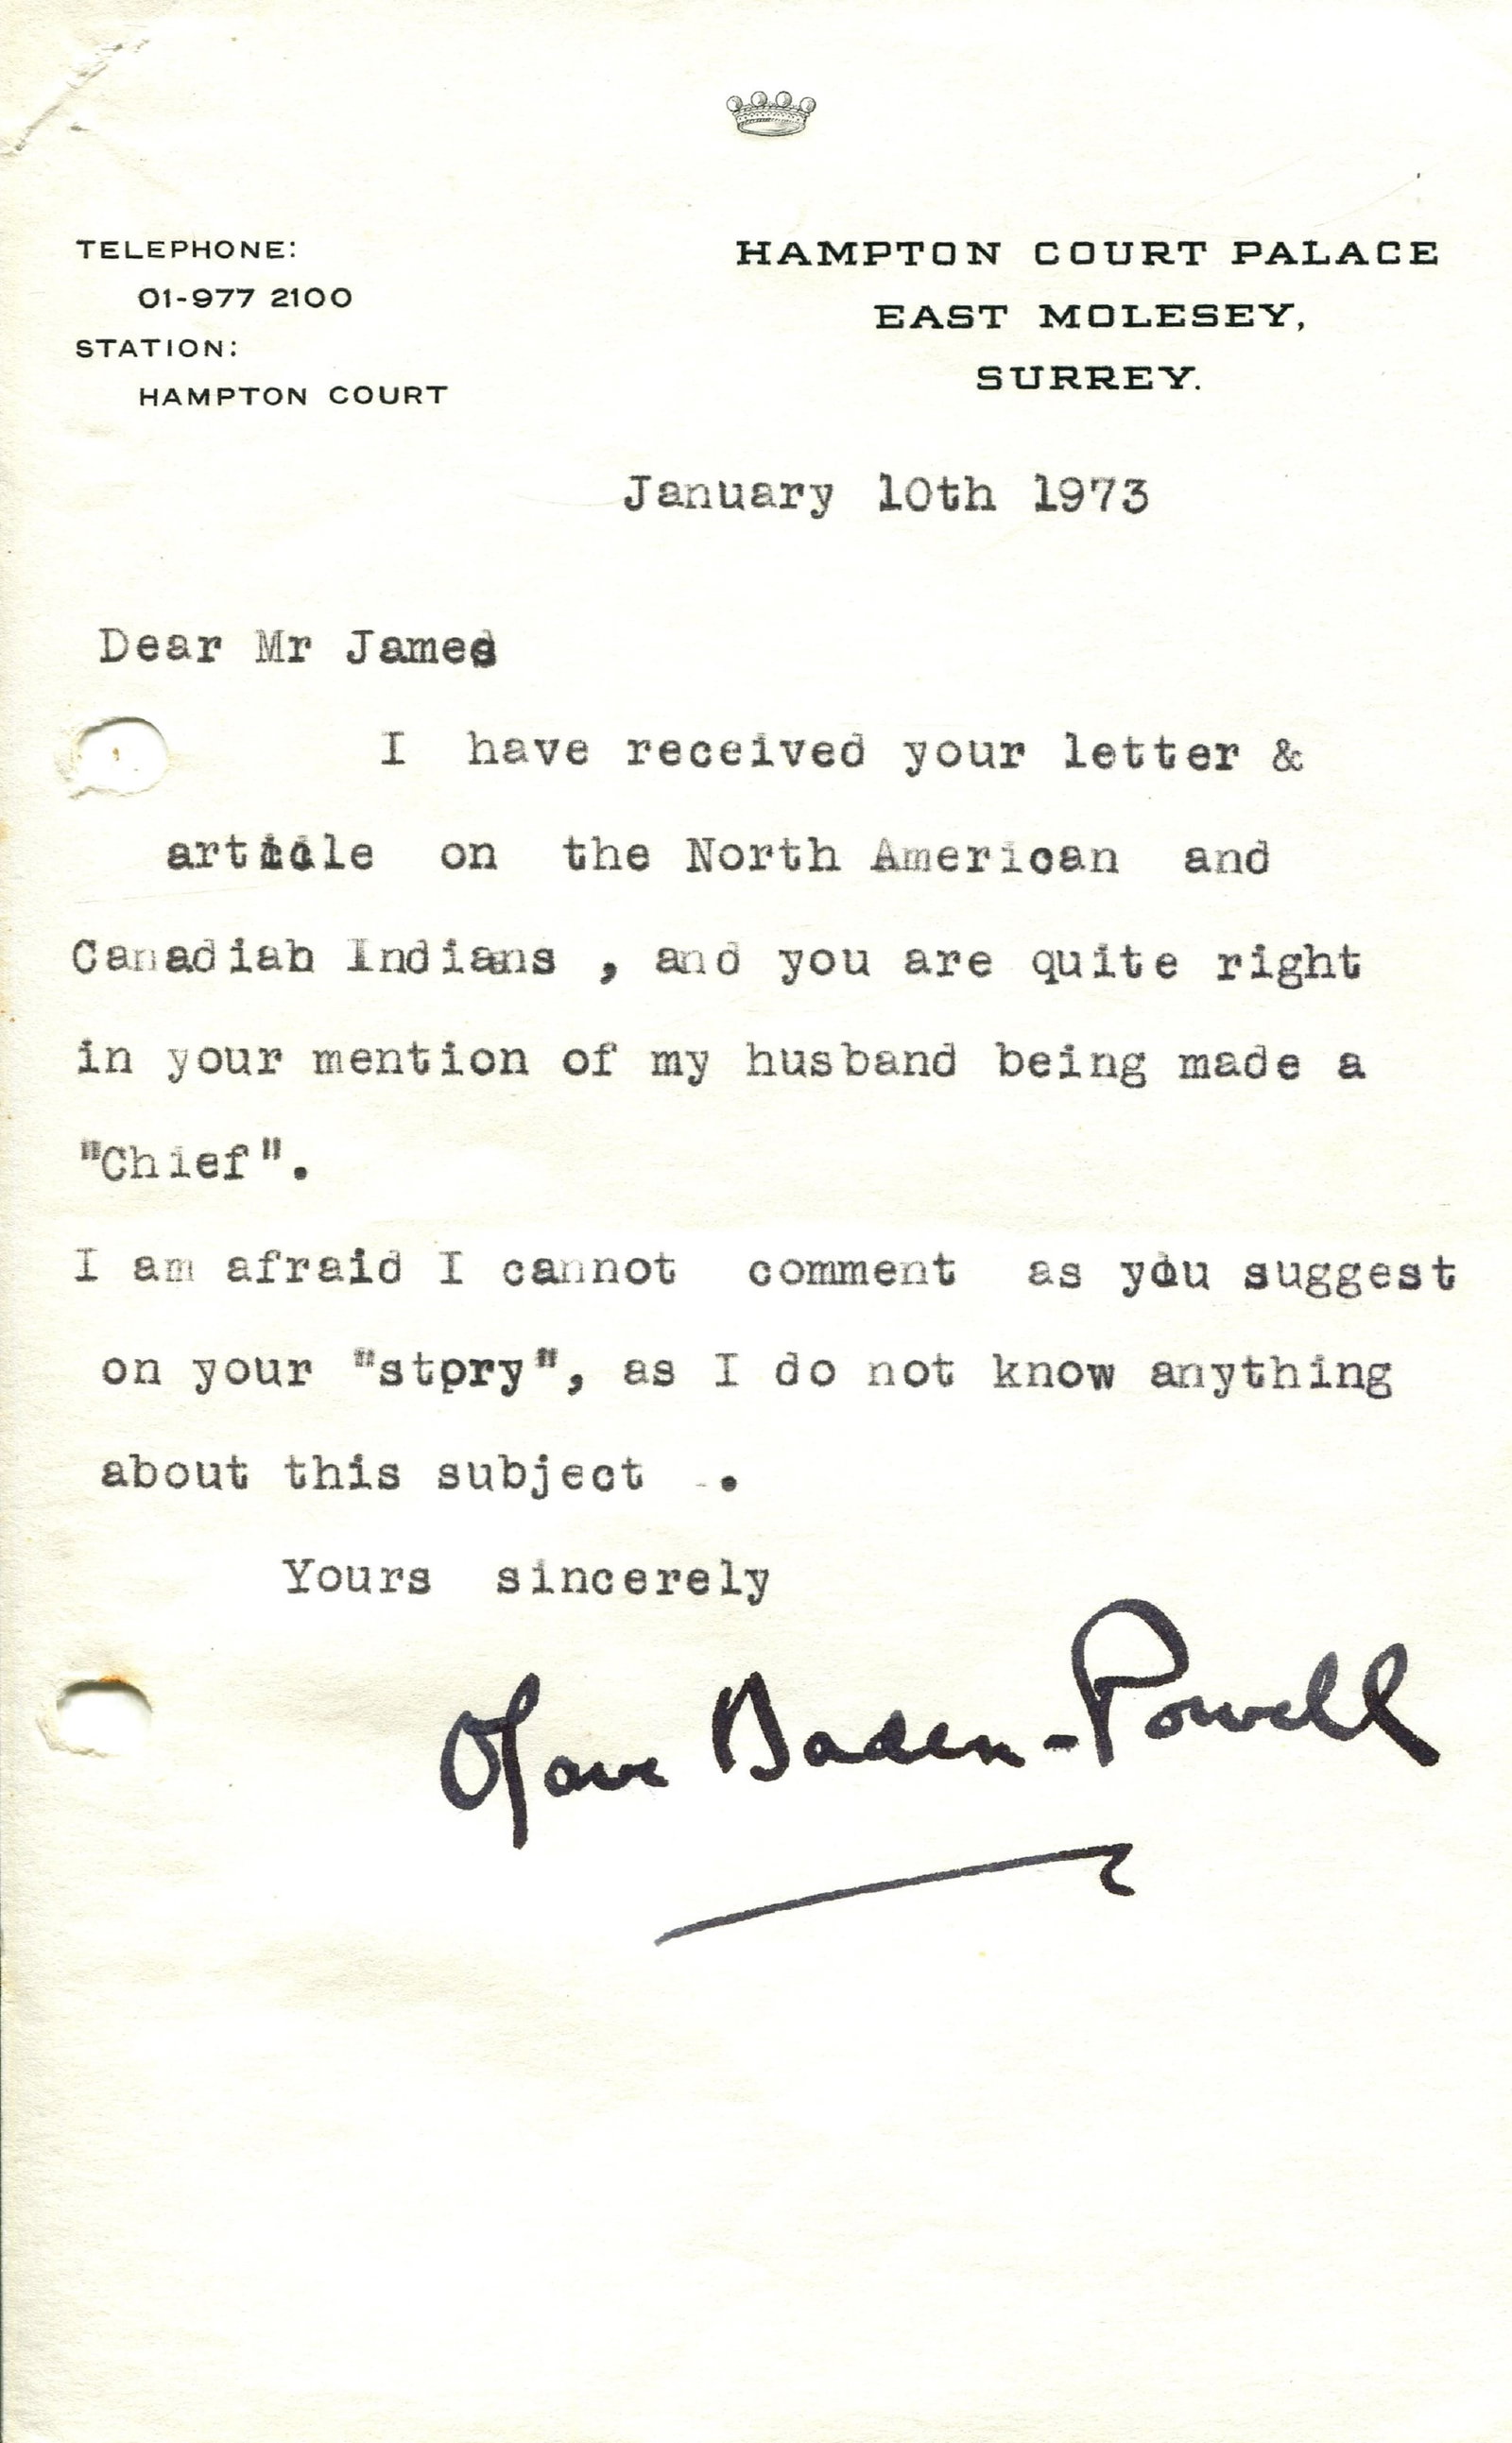 TELEPHONE:
01-977 2100
STATION:
HAMPTON COURT
HAMPTON COURT PALACE
EAST MOLESEY,
SURREY.
January 10th 1973
Dear Mr James
I have received your letter &
article on the North American and
Canadiah Indians , and you are quite right
in your mention of my husband being made a
"Chief".
I am afraid I cannot comment as you suggest
on your "story", as I do not know anything
about this subject .
Yours sincerely
Olave Baden-Powell